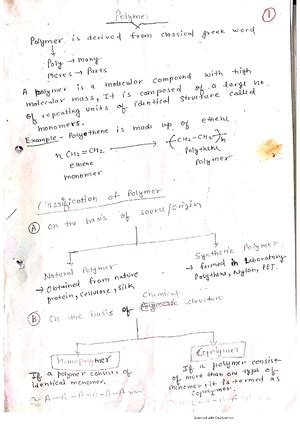 Polymer
1
Polymer is derived from classical greek word
Poly → Many
Meres → Parts
A polymer is a molecular compound with high
molecular mass, It is composed of a large no.
of repeating units of identical structure called
monomers.
Example - Polyethene is made up of ethene
n CH2=CH2 → (CH2-CH2)n
ethene Polythene
monomer Polymer
Classification of Polymer
A On the basis of source/origin
Natural Polymer
→ Obtained from nature
protein, cellulose, silk
Synthetic Polymer
→ formed in Laboratory
Polythene, Nylon, PET.
B On the basis of Chemical structure
Homopolymer
If a polymer consists of
identical monomer.
~A-A-A-A-A~
Copolymer
If a polymer consist
of more than one type of
monomer, it is termed as
copolymer.
Scanned with CamScanner